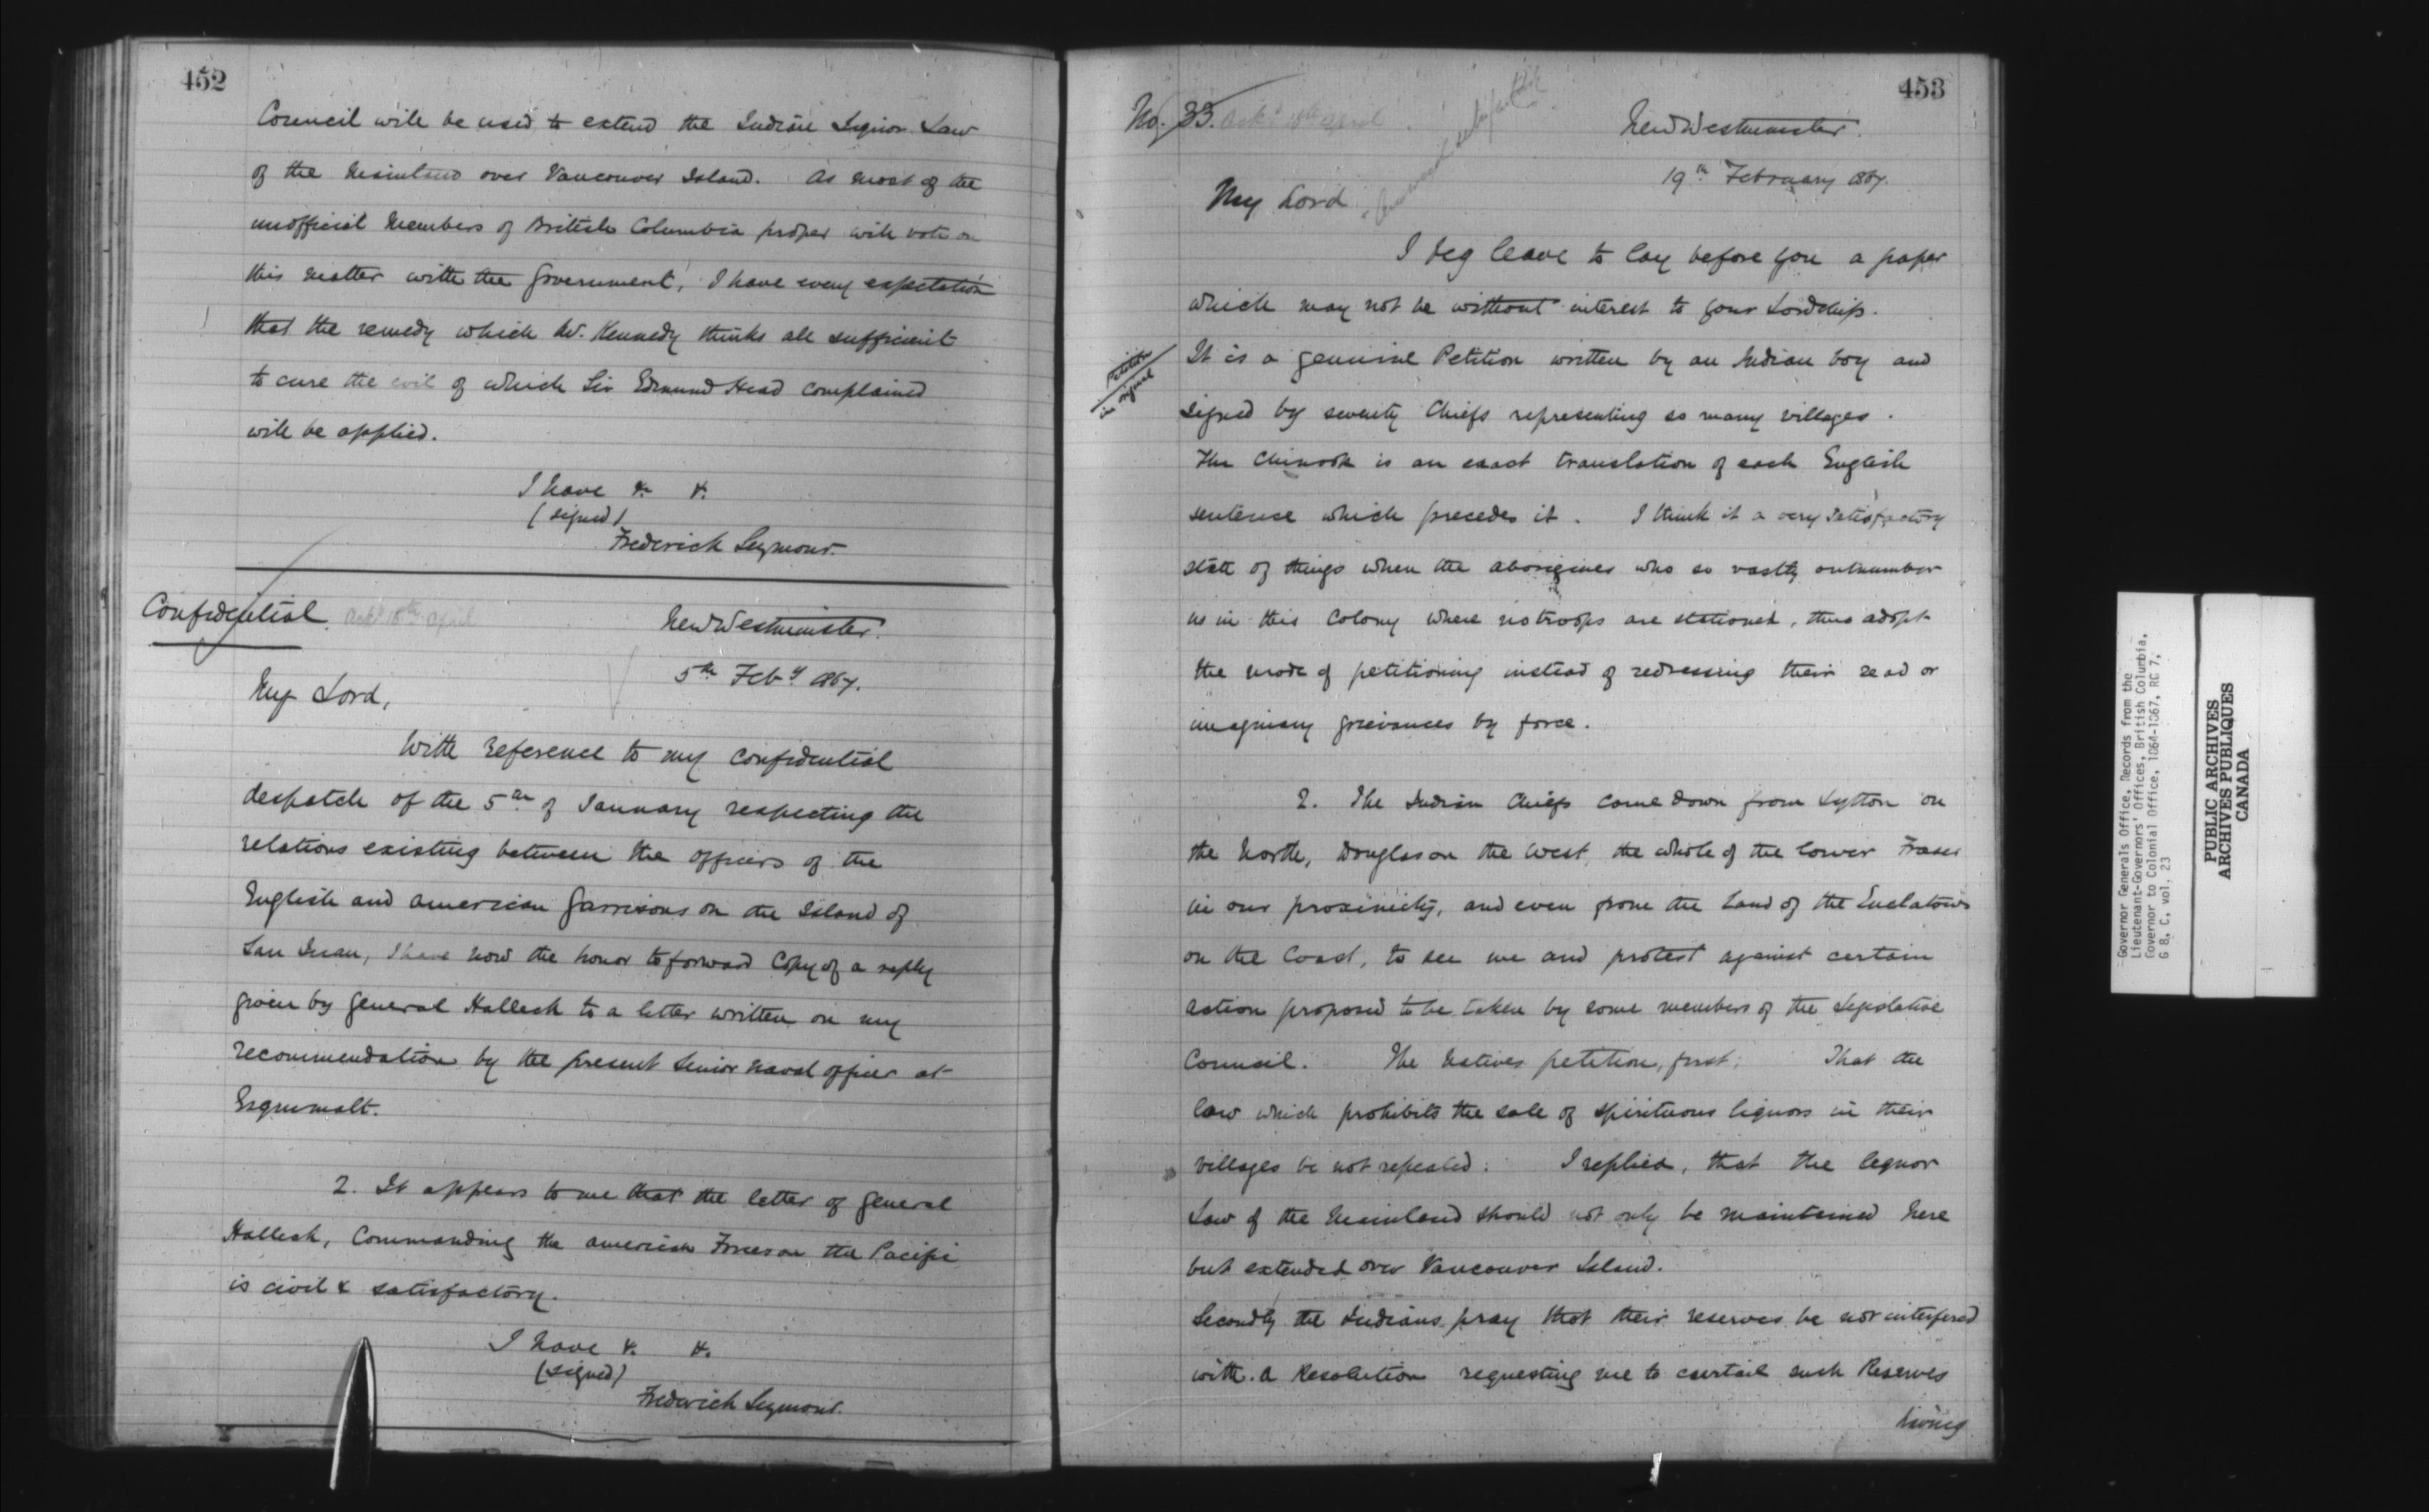 452
Council will be used to extend the Indian Liquor Law
of the Mainland over Vancouver Island. As most of the
unofficial Members of British Columbia proper will vote on
this matter with the Government, I have every expectation
that the remedy which Mr. Kennedy thinks all sufficient
to cure the evil of which Sir Edmund Head complained
will be applied.
I have &. &.
(signed)
Frederick Seymour.
Confidential. Ackd 18th April
New Westminster.
5th Feby 1867.
My Lord,
With reference to my confidential
despatch of the 5th of January respecting the
relations existing between the officers of the
English and American Garrisons on the Island of
San Juan, I have now the honor to forward Copy of a reply
given by General Halleck to a letter written on my
recommendation by the present Senior Naval officer at
Esquimalt.
2. It appears to me that the letter of General
Halleck, Commanding the American Forces on the Pacific
is civil & satisfactory.
I have &. &.
(signed)
Frederick Seymour.
453
No. 33. Ackd 18th April
New Westminster.
19th February 1867.
My Lord
I beg leave to lay before you a paper
which may not be without interest to your Lordship.
Petition
in original
It is a genuine Petition written by an Indian boy and
signed by seventy Chiefs representing so many villages.
The Chinook is an exact translation of each English
sentence which precedes it. I think it a very satisfactory
state of things when the aborigines who so vastly outnumber
us in this Colony where no troops are stationed, thus adopt
the mode of petitioning instead of redressing their real or
imaginary grievances by force.
2. The Indian Chiefs come down from Lytton on
the North, Douglas on the West, the whole of the lower Fraser
in our proximity, and even from the Land of the Euclataws
on the Coast, to see me and protest against certain
action proposed to be taken by some members of the Legislative
Council. The Natives petition, first: That the
law which prohibits the sale of spirituous liquors in their
villages be not repealed: I replied, that the liquor
Law of the Mainland should not only be maintained here
but extended over Vancouver Island.
Secondly the Indians pray that their reserves be not interfered
with. A Resolution requesting me to curtail such Reserves
having
Governor Generals Office, Records from the
Lieutenant-Governors' Offices, British Columbia,
Governor to Colonial Office, 1864-1867, RG 7,
G 8, C, vol. 23
PUBLIC ARCHIVES
ARCHIVES PUBLIQUES
CANADA